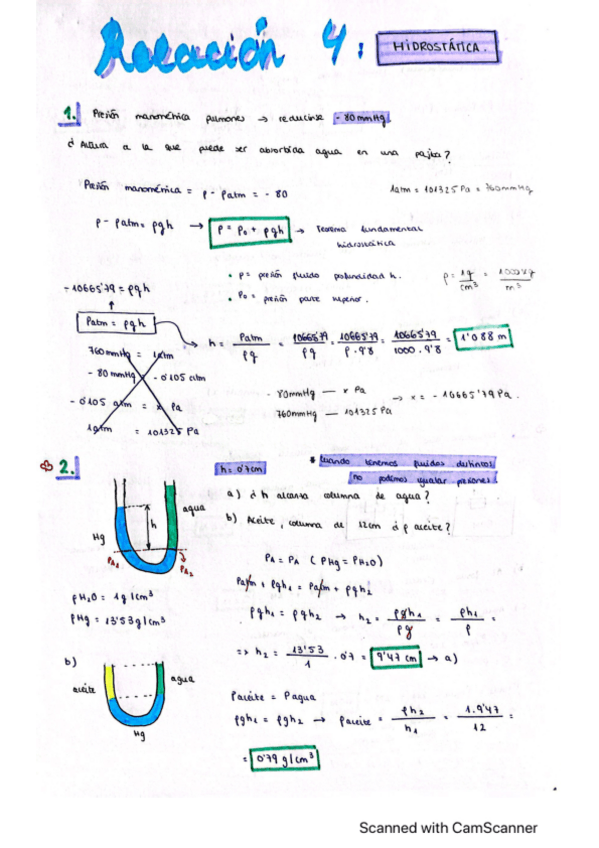 Relación 4: HIDROSTÁTICA.
1. Presión manométrica pulmones → reducirse - 80 mmHg
¿ Altura a la que puede ser absorbida agua en una pajita?
Presión manométrica = P - Patm = - 80
1atm = 101325 Pa = 760mmHg
P - Patm = ρgh → P = P₀ + ρgh → Teorema fundamental
hidrostática
• P = presión fluido profundidad h.
ρ = 1g / cm³ = 1000 kg / m³
• P₀ = presión parte superior.
- 10665'79 = ρgh
Patm = ρgh
h = Patm / ρg = 10665'79 / ρg = 10665'79 / ρ · 9'8 = 10665'79 / 1000 · 9'8 = 1'088 m
760mmHg = 1atm
- 80 mmHg - 0'105 atm
- 0'105 atm = x Pa
1atm = 101325 Pa
- 80mmHg — x Pa
→ x = - 10665'79 Pa.
760mmHg — 101325 Pa
2. h = 0'7cm
* Cuando tenemos fluidos distintos
no podemos igualar presiones
a) ¿ h alcanza columna de agua?
b) Aceite, columna de 12cm ¿ ρ aceite?
agua
h
Hg
PA₁
PA₂
PA = PA ( PHg = PH₂O)
Patm + ρgh₁ = Patm + ρgh₂
ρH₂O = 1g/cm³
ρHg = 13'53g/cm³
ρgh₁ = ρgh₂ → h₂ = ρgh₁ / ρg = ρh₁ / ρ =
=> h₂ = 13'53 / 1 · 0'7 = 9'47 cm → a)
b)
aceite
agua
Hg
Paceite = Pagua
ρgh₁ = ρgh₂ → ρaceite = ρh₂ / h₁ = 1·9'47 / 12 =
= 0'79 g/cm³
Scanned with CamScanner